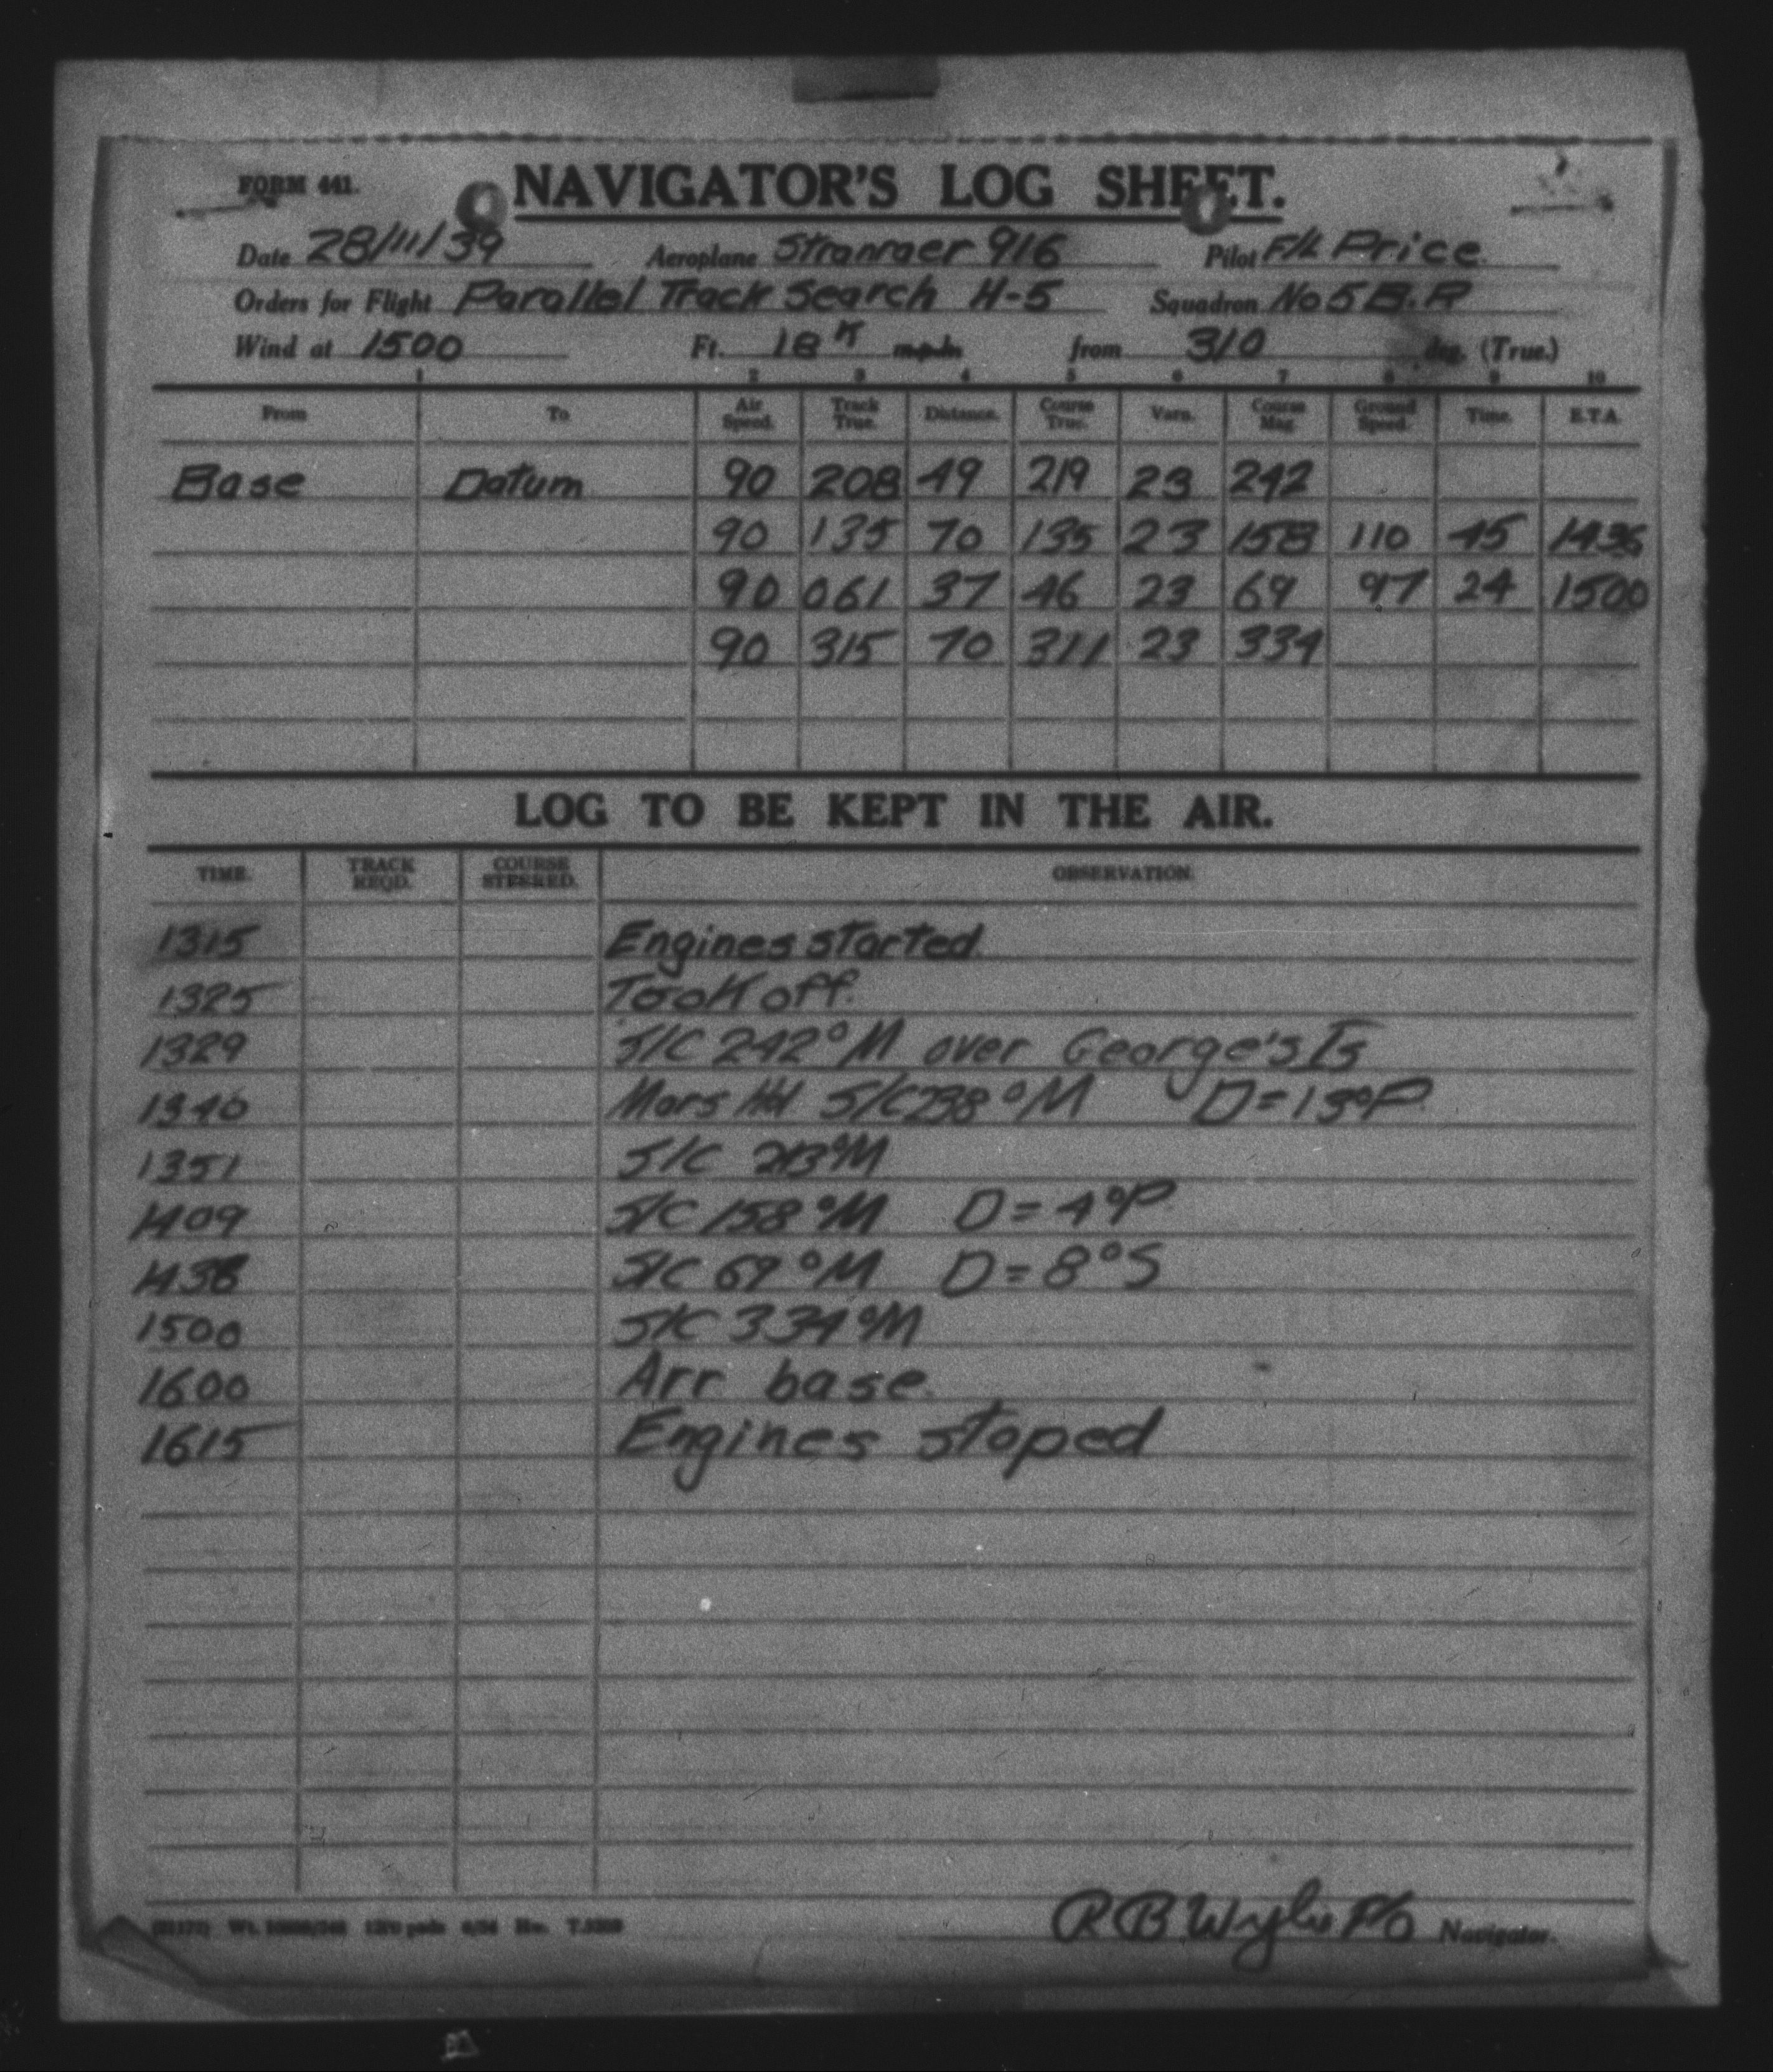 FORM 441.
NAVIGATOR'S LOG SHEET.
Date 28/11/39 Aeroplane Stranraer 916 Pilot F/L Price
Orders for Flight Parallel Track Search H-5 Squadron No 5 B.R
Wind at 1500 Ft. 18 K m.p.h. from 310 deg. (True.)
1 2 3 4 5 6 7 8 9 10
From To Air Speed. Track True. Distance. Course True. Varn. Course Mag. Ground Speed. Time. E.T.A.
Base Datum 90 208 49 219 23 242
90 135 70 135 23 158 110 45 1436
90 061 37 46 23 69 97 24 1500
90 315 70 311 23 334
LOG TO BE KEPT IN THE AIR.
TIME. TRACK REQD. COURSE STEERED. OBSERVATION.
1315 Engines started.
1325 Took off.
1329 S/C 242°M over George's Is
1340 Mars Hd S/C 238°M D=13°P
1351 S/C 213°M
1409 S/C 158°M D=4°P
1436 S/C 69°M D=8°S
1500 S/C 334°M
1600 Arr base.
1615 Engines stoped
R B. Wylie P/O Navigator.